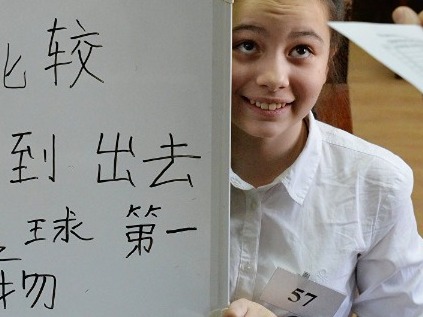 比较
到 出去
球 第一
物
57